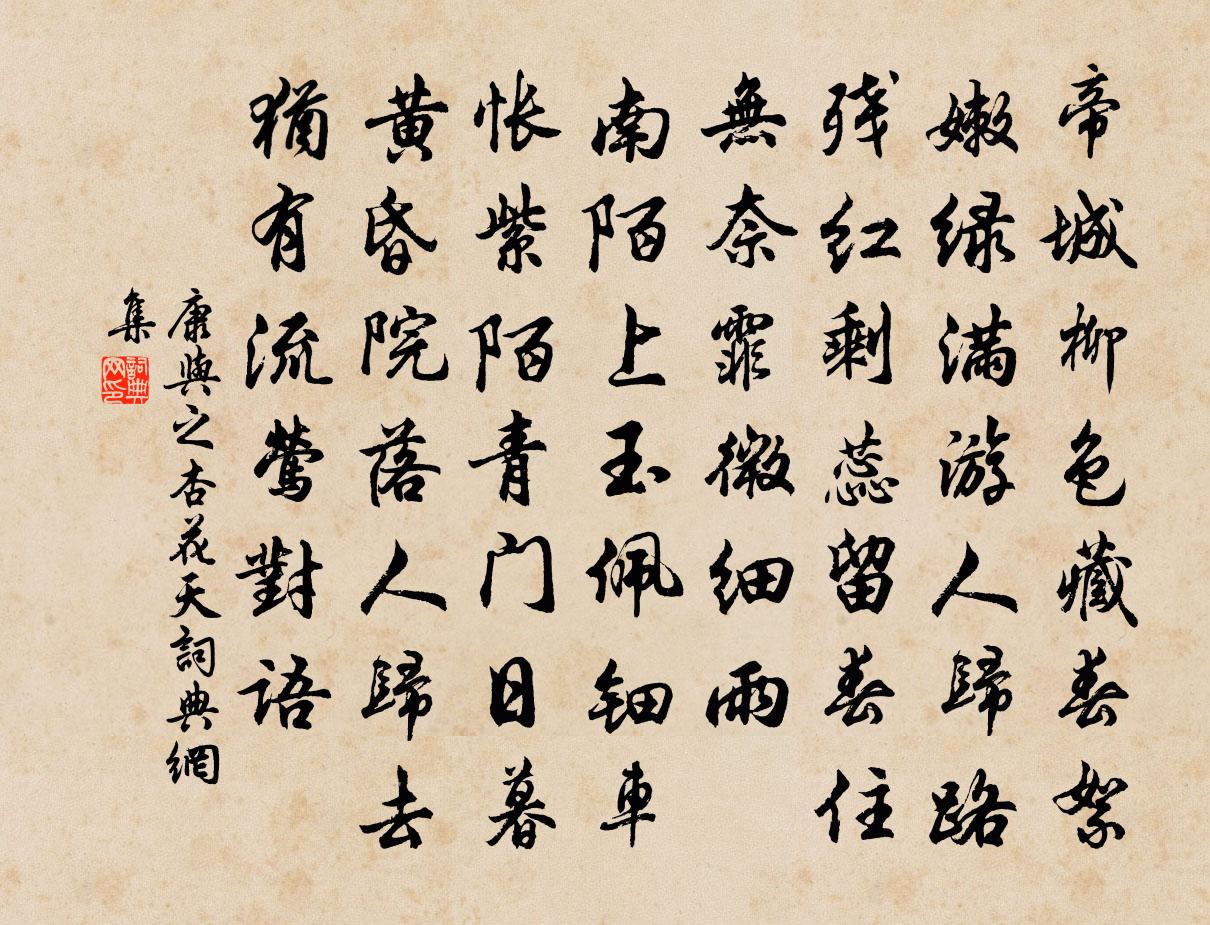 帝城柳色藏春絮
嫩绿满游人歸路
残红剩蕊留春住
無奈霏微细雨
南陌上玉佩钿車
怅紫陌青门日暮
黄昏院落人歸去
猶有流莺對語
康與之杏花天詞典網
集
詞典网印